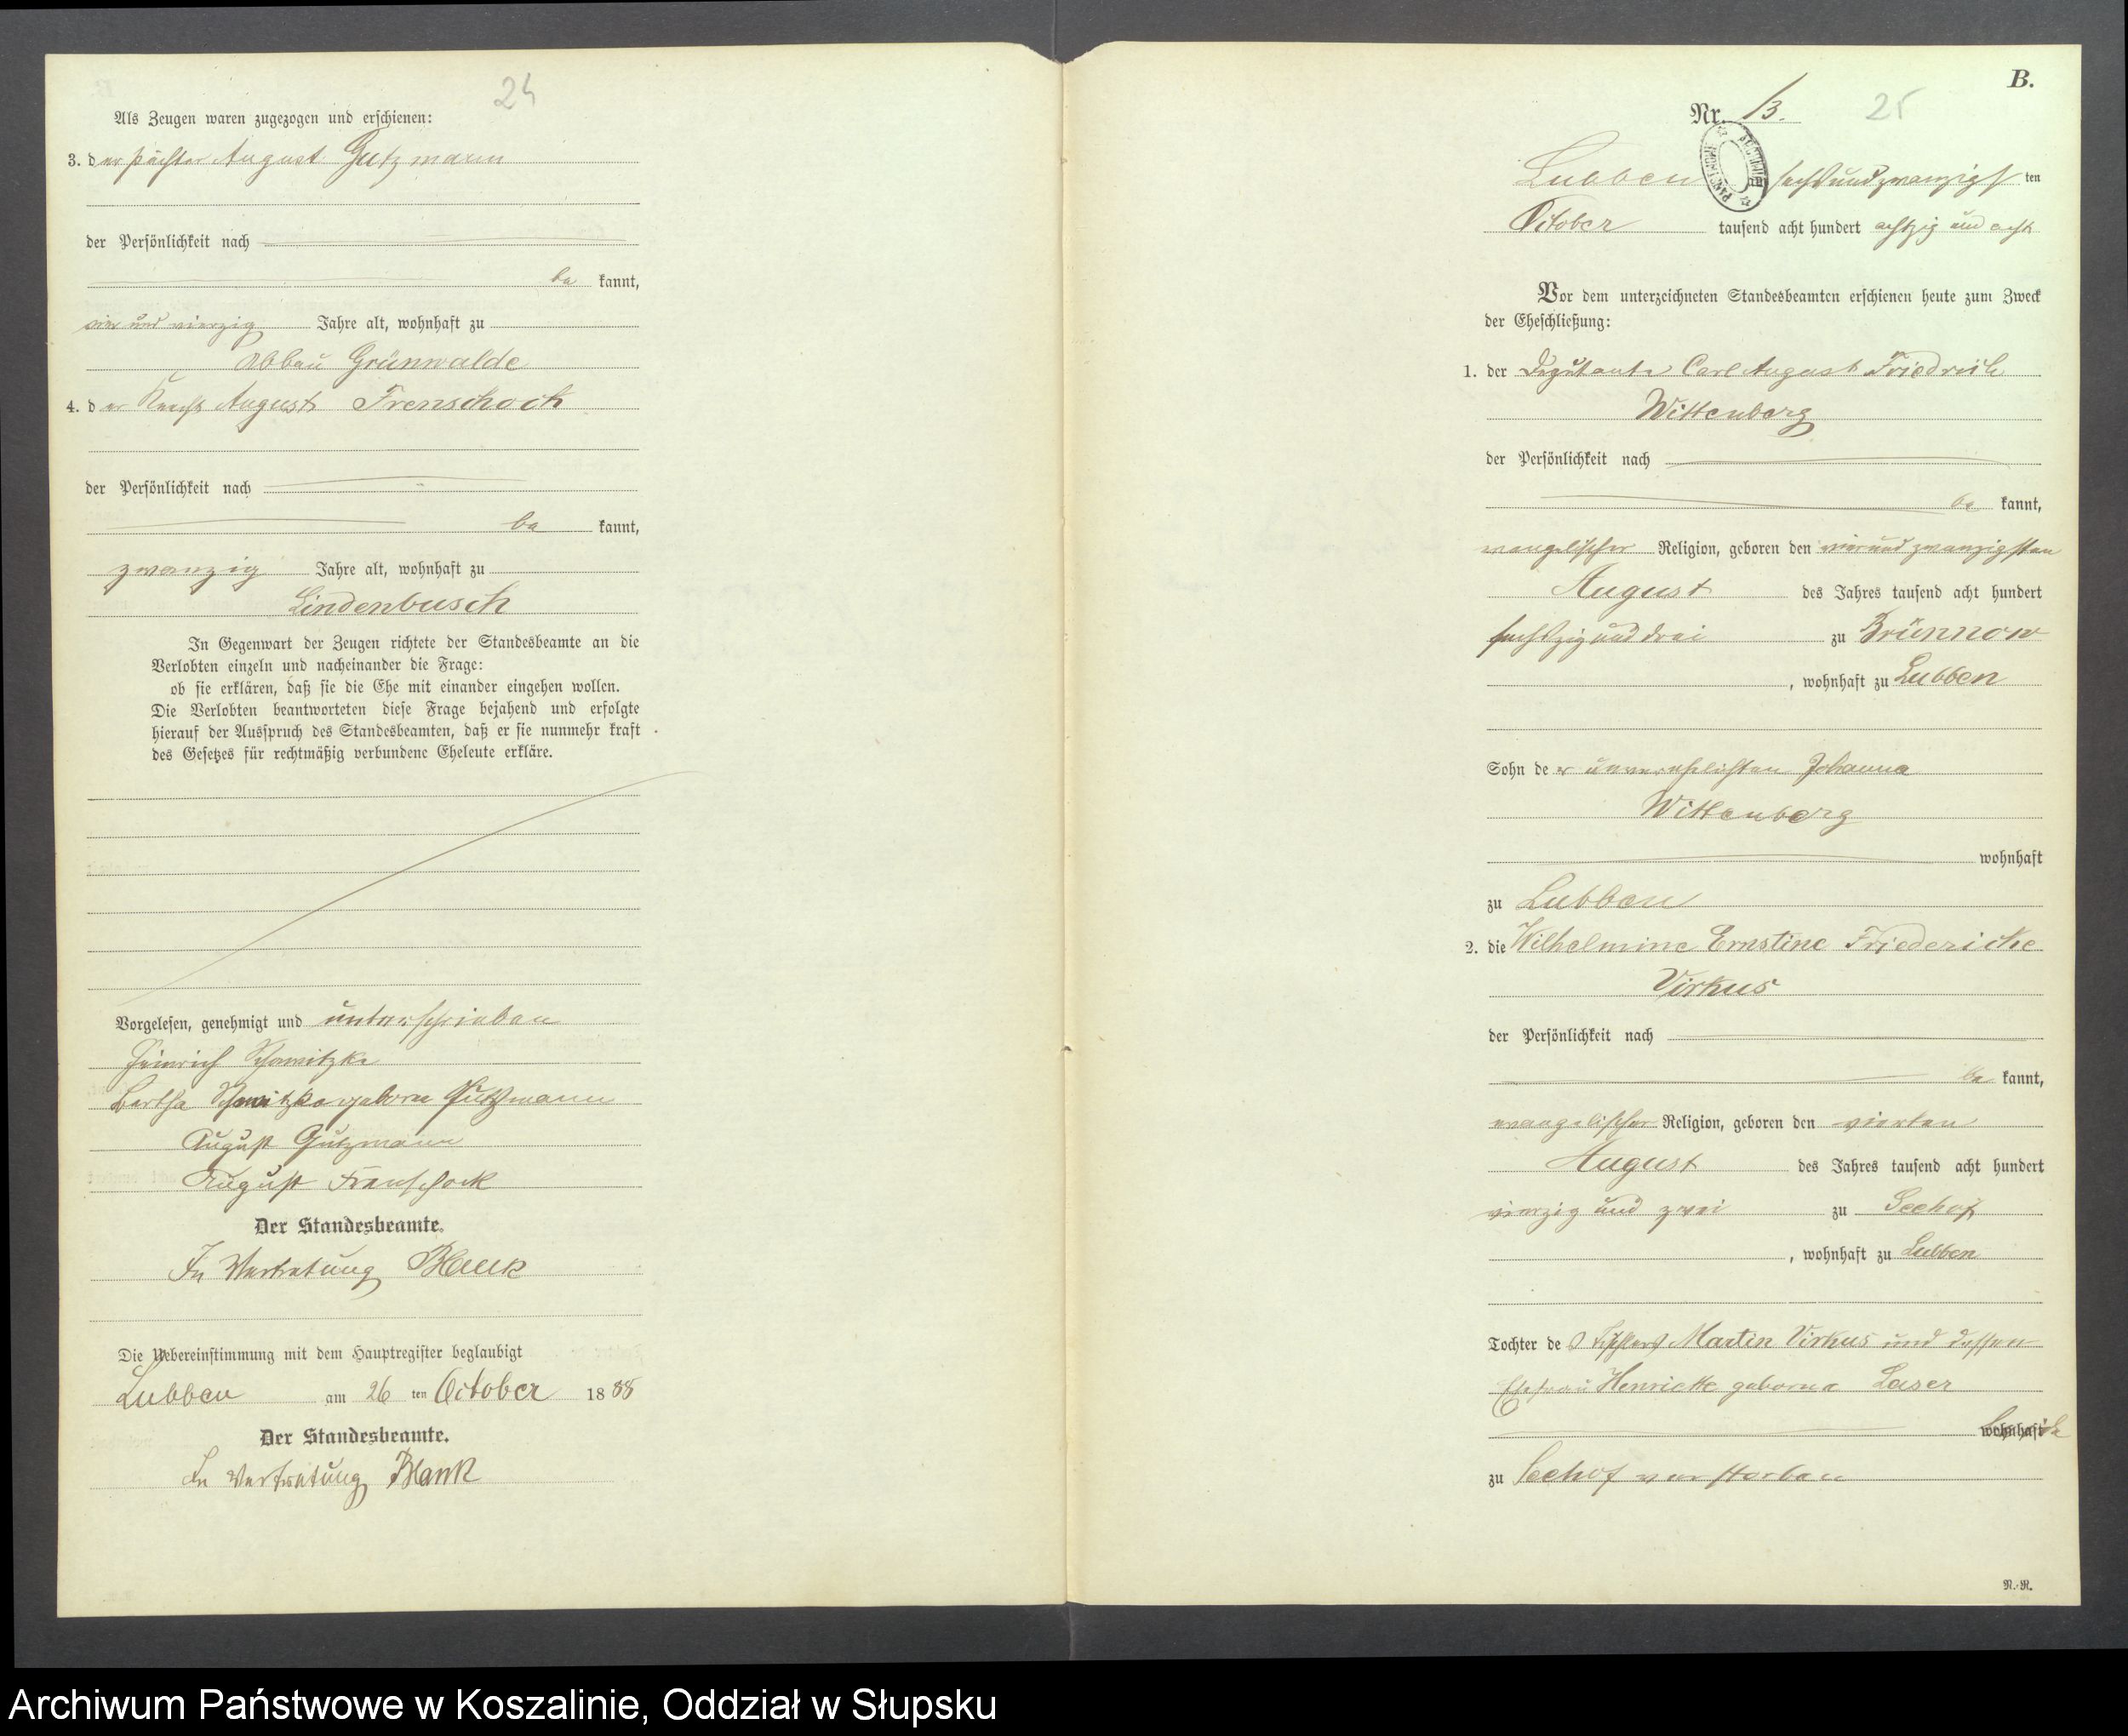 24
Als Zeugen waren zugezogen und erschienen:
3. der Pächter August Gutzmann
der Persönlichkeit nach
be kannt,
vier und vierzig Jahre alt, wohnhaft zu
Abbau Grünwalde
4. der Knecht August Frenschock
der Persönlichkeit nach
be kannt,
zwanzig Jahre alt, wohnhaft zu
Lindenbusch
In Gegenwart der Zeugen richtete der Standesbeamte an die
Verlobten einzeln und nacheinander die Frage:
ob sie erklären, daß sie die Ehe mit einander eingehen wollen.
Die Verlobten beantworteten diese Frage bejahend und erfolgte
hierauf der Ausspruch des Standesbeamten, daß er sie nunmehr kraft
des Gesetzes für rechtmäßig verbundene Eheleute erkläre.
Vorgelesen, genehmigt und unterschrieben
Heinrich
Bertha geborne Gutzmann
August Gutzmann
August Frenschock
Der Standesbeamte.
In Vertretung Blank
Die Uebereinstimmung mit dem Hauptregister beglaubigt
Lubben am 26 ten October 1888
Der Standesbeamte.
In Vertretung Blank
B.
Nr. 13. 25
Lubben am sechsundzwanzigsten
October tausend acht hundert achtzig und acht
Vor dem unterzeichneten Standesbeamten erschienen heute zum Zweck
der Eheschließung:
1. der Deputante Carl August Friedrich
Wittenberg
der Persönlichkeit nach
be kannt,
evangelischer Religion, geboren den vierundzwanzigsten
August des Jahres tausend acht hundert
sechszig und drei zu Brünnow
, wohnhaft zu Lubben
Sohn der unverehelichten Johanna
Wittenberg
wohnhaft
zu Lubben
2. die Wilhelmine Ernstine Friedericke
Virkus
der Persönlichkeit nach
be kannt,
evangelischer Religion, geboren den vierten
August des Jahres tausend acht hundert
vierzig und zwei zu Seehof
, wohnhaft zu Lubben
Tochter des Fischers Martin Virkus und dessen
Ehefrau Henriette geborne Laser
wohnhaft
zu Seehof verstorben
N.-R.
Archiwum Państwowe w Koszalinie, Oddział w Słupsku